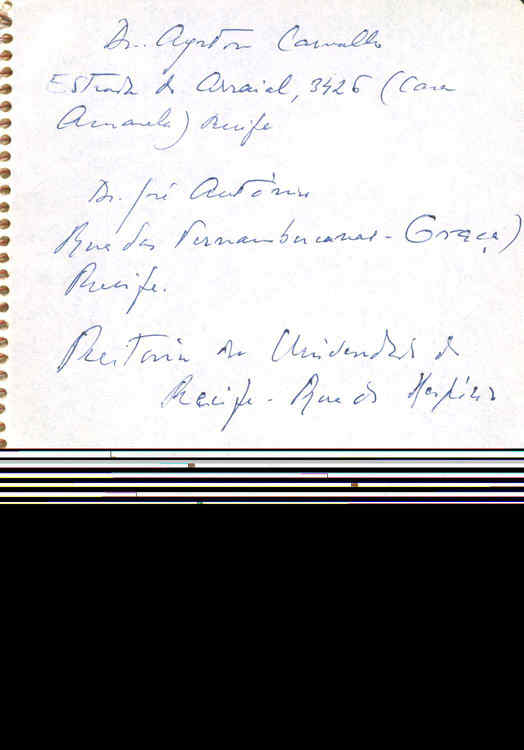 Dr. Ayrton Carvalho
Estrada do Arraial, 3426 (Casa
Amarela) Recife
Dr. José Antônio
Rua das Pernambucanas - Graça)
Recife.
Reitoria da Universidade do
Recife - Rua do Hospício